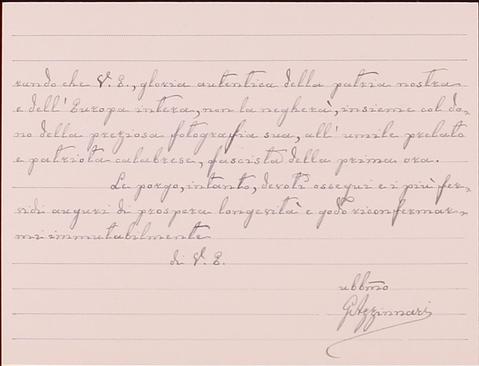 rando che V. E., gloria autentica della patria nostra
e dell'Europa intera, non la negherà, insieme col do-
no della preziosa fotografia sua, all'umile prelato
e patriota calabrese, fascista della prima ora.
Le porgo, intanto, devoti ossequi e i più fer-
vidi auguri di prospera longevità e godo riconfermar-
mi immutabilmente
di V. E.
ubb͞mo
G. Azzinnari